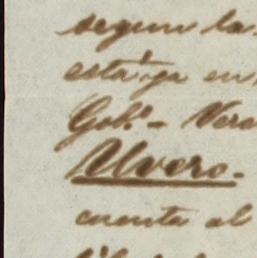 segun la
esta ya en
Gobº - Vera
Alvero.
cuenta al